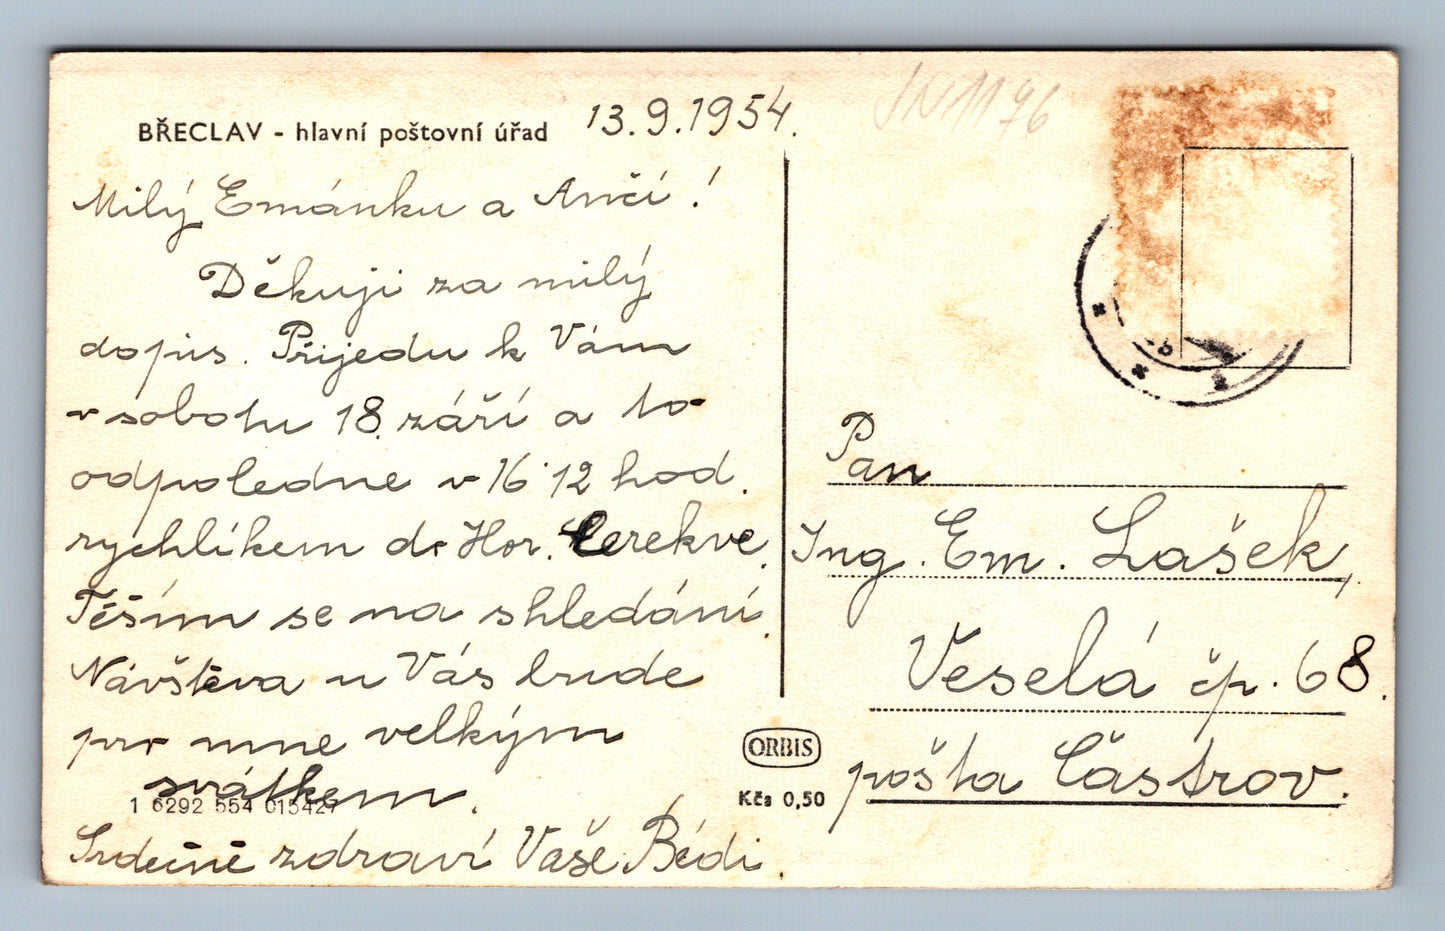 BŘECLAV - hlavní poštovní úřad
13.9.1954.
JN1176
Milý Emánku a Anči!
Děkuji za milý
dopis. Přijedu k Vám
v sobotu 18. září a to
odpoledne v 16˙12 hod.
rychlíkem do Hor. Cerekve.
Těším se na shledání.
Návštěva u Vás bude
pro mne velkým
svátkem.
1 6292 554 015427
Srdečně zdraví Vaše Bédi.
ORBIS
Kčs 0,50
Pan
Ing. Em. Lašek,
Veselá čp. 68.
pošta Častrov.